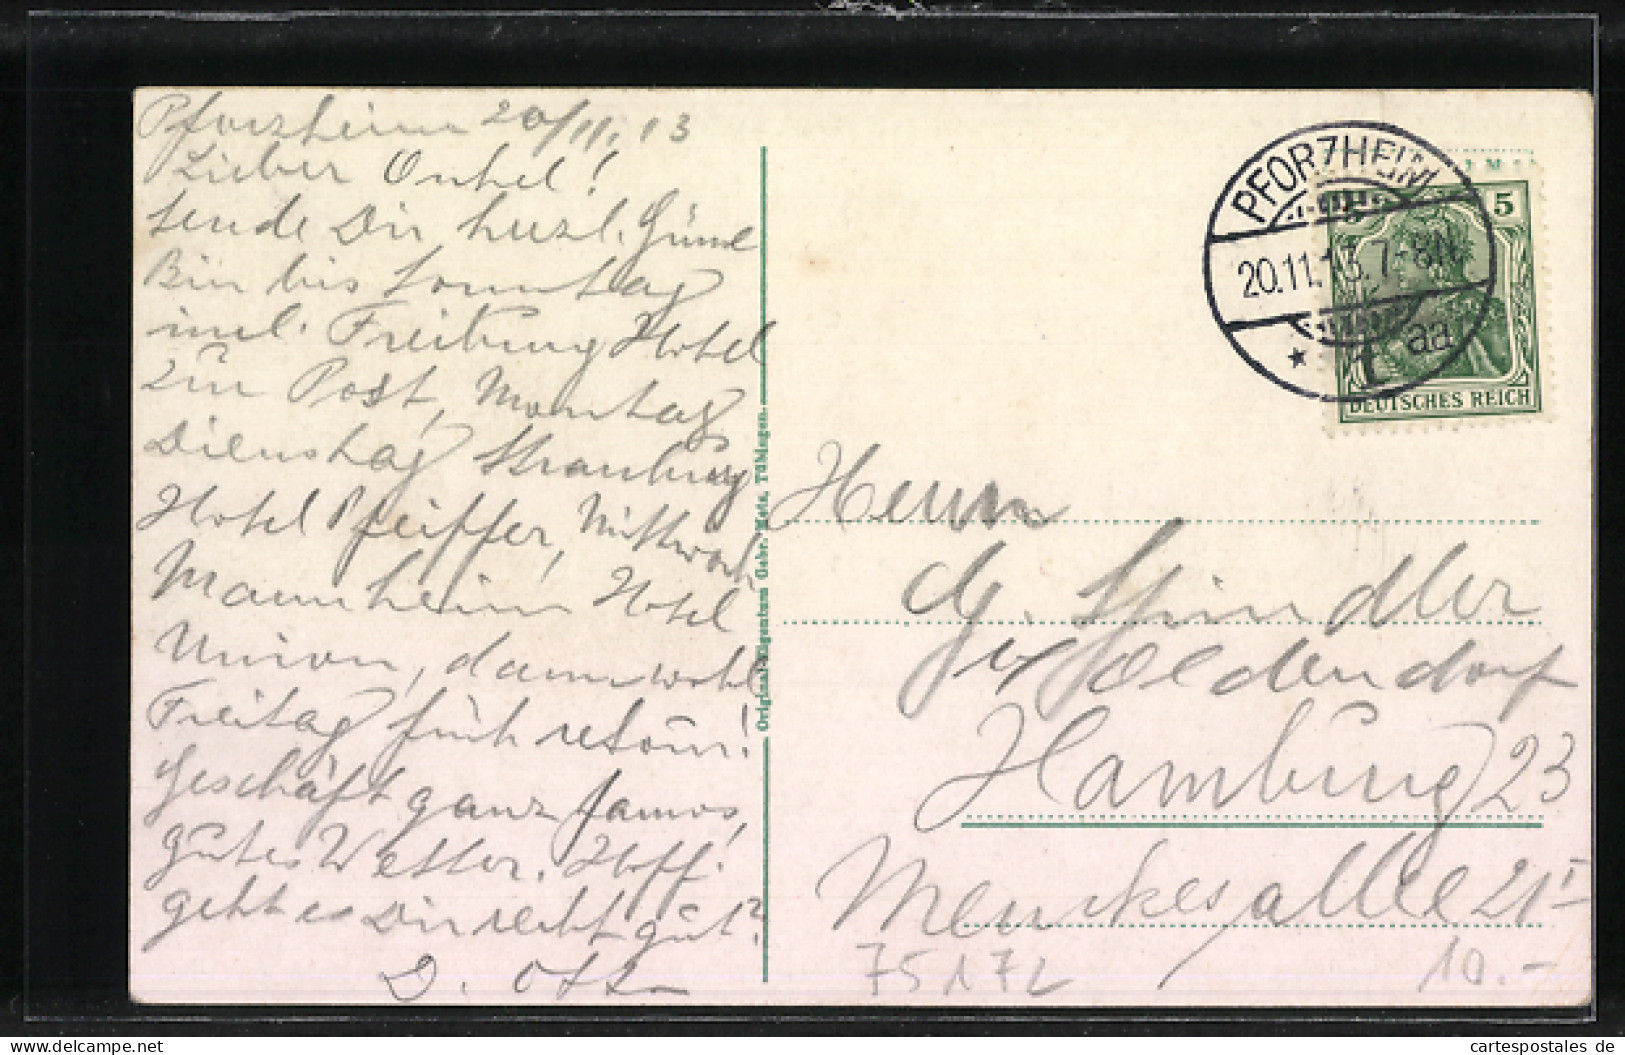 Pforzheim 20/11. 13
Lieber Onkel!
sende Dir herzl. Grüße
Bin bis Sonntag
incl. Freiburg Hotel
zur Post, Montag
Dienstag Strassburg
Hotel Pfeiffer, Mittwoch
Mannheim Hotel
Union, dann wohl
Freitag früh retour!
Geschäft ganz famos,
gutes Wetter. Hoff.
geht es Dir recht gut?
D. Otto
Original-Eigentum Gebr. Metz, Tübingen.
PFORZHEIM
20.11.13. 7-8N.
aa
5
DEUTSCHES REICH
Herrn
Spindler
Oldendorf
Hamburg 23
Menckesallee 21 I
75172
10.-
cartespostales.de
www.delcampe.net